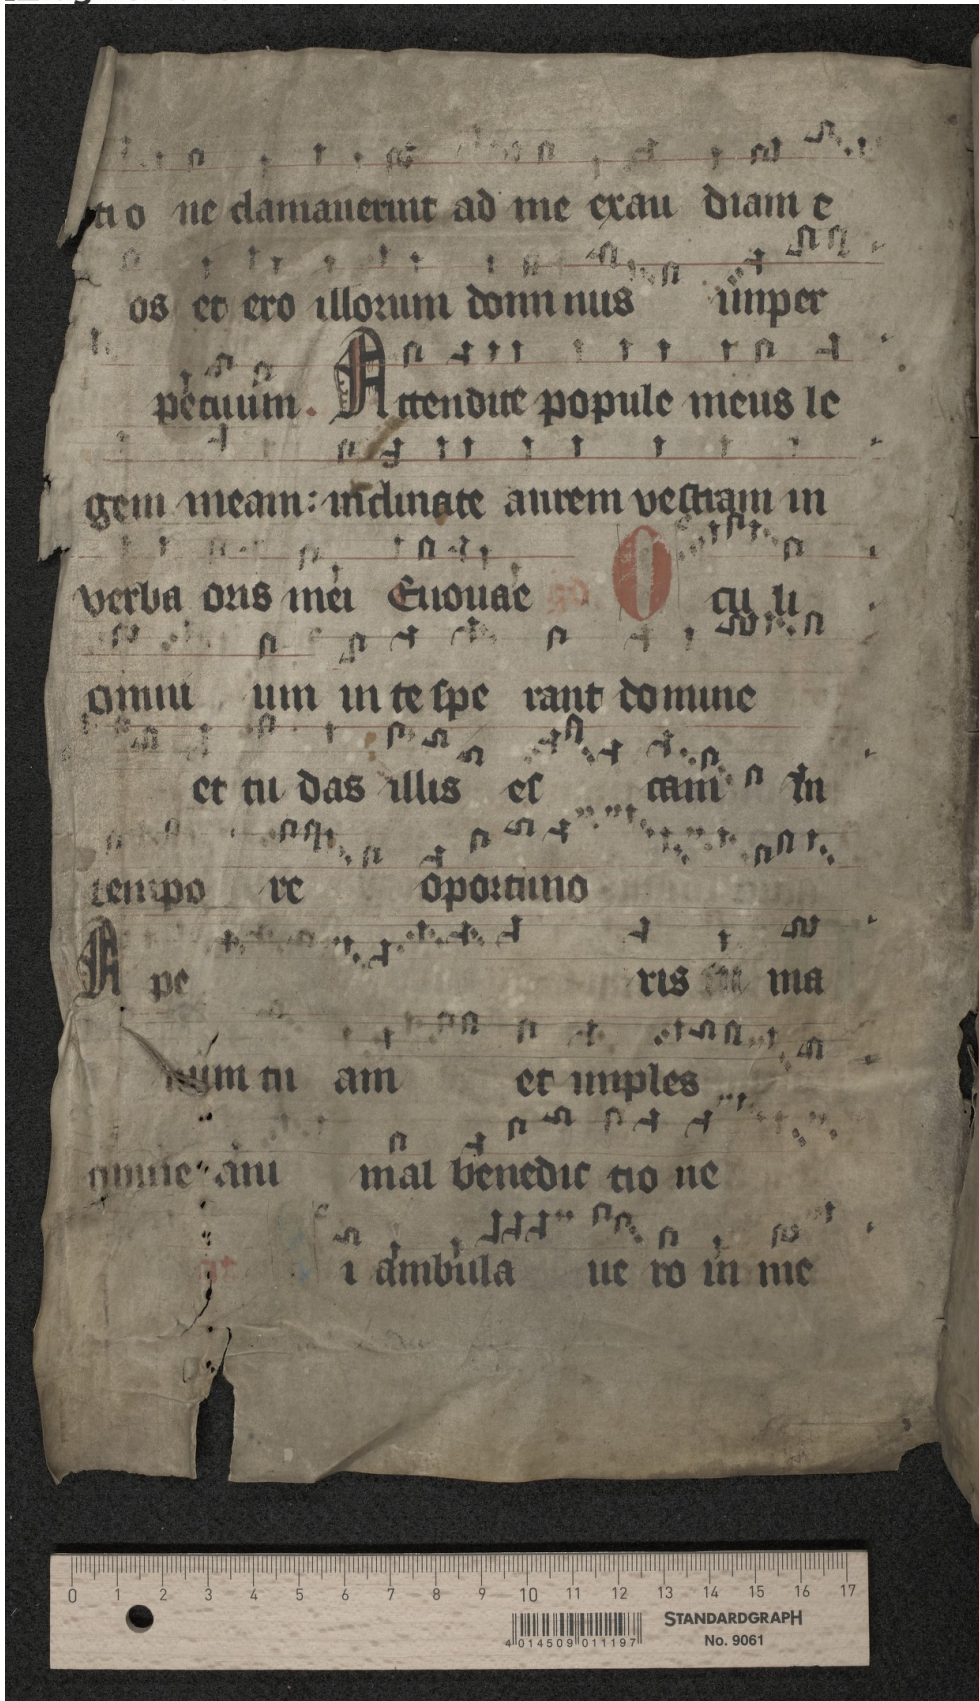 tio ne clamauerint ad me exau diam e
os et ero illorum domi nus imper
petuum. Attendite popule meus le
gem meam: inclinate aurem vestram in
verba oris mei Euouae O cu li
omni um in te spe rant domine
et tu das illis es cam in
tempo re oportuno
A pe ris tu ma
num tu am et imples
omne ani mal benedic tio ne
i ambula ue ro in me
0 1 2 3 4 5 6 7 8 9 10 11 12 13 14 15 16 17
4 014509 011197
STANDARDGRAPH
No. 9061